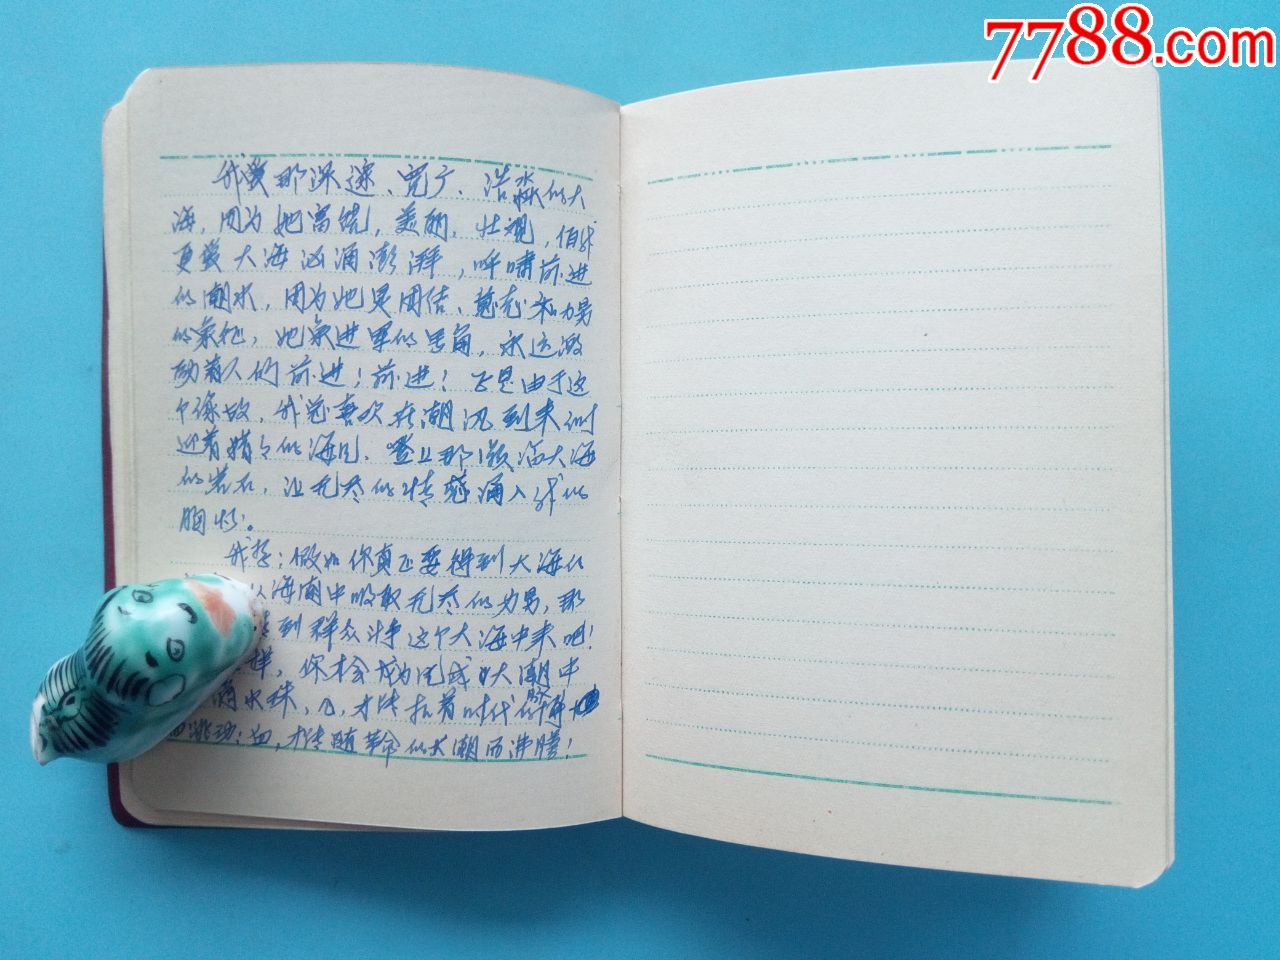 7788.com
我爱那深邃、宽广、浩淼的大
海，因为她富饶，美丽、壮观，但我
更爱大海汹涌澎湃，呼啸前进
的潮水，因为她是团结、意志和力量
的象征，她象进军的号角，永远激
动着人们前进！前进！正是由于这
个缘故，我总喜欢在潮汛到来时
迎着精々的海风，登上那濒临大海
的岩石，让无尽的情感涌入我的
胸怀。
我想：假如你真正要得到大海
从海南中吸取无尽的力量，那
到群众斗争这个大海中来吧！
样，你才会成为完成大潮中
滴水珠，心，才能扣着时代的
而跳动；血，才能随革命的大潮而沸腾！